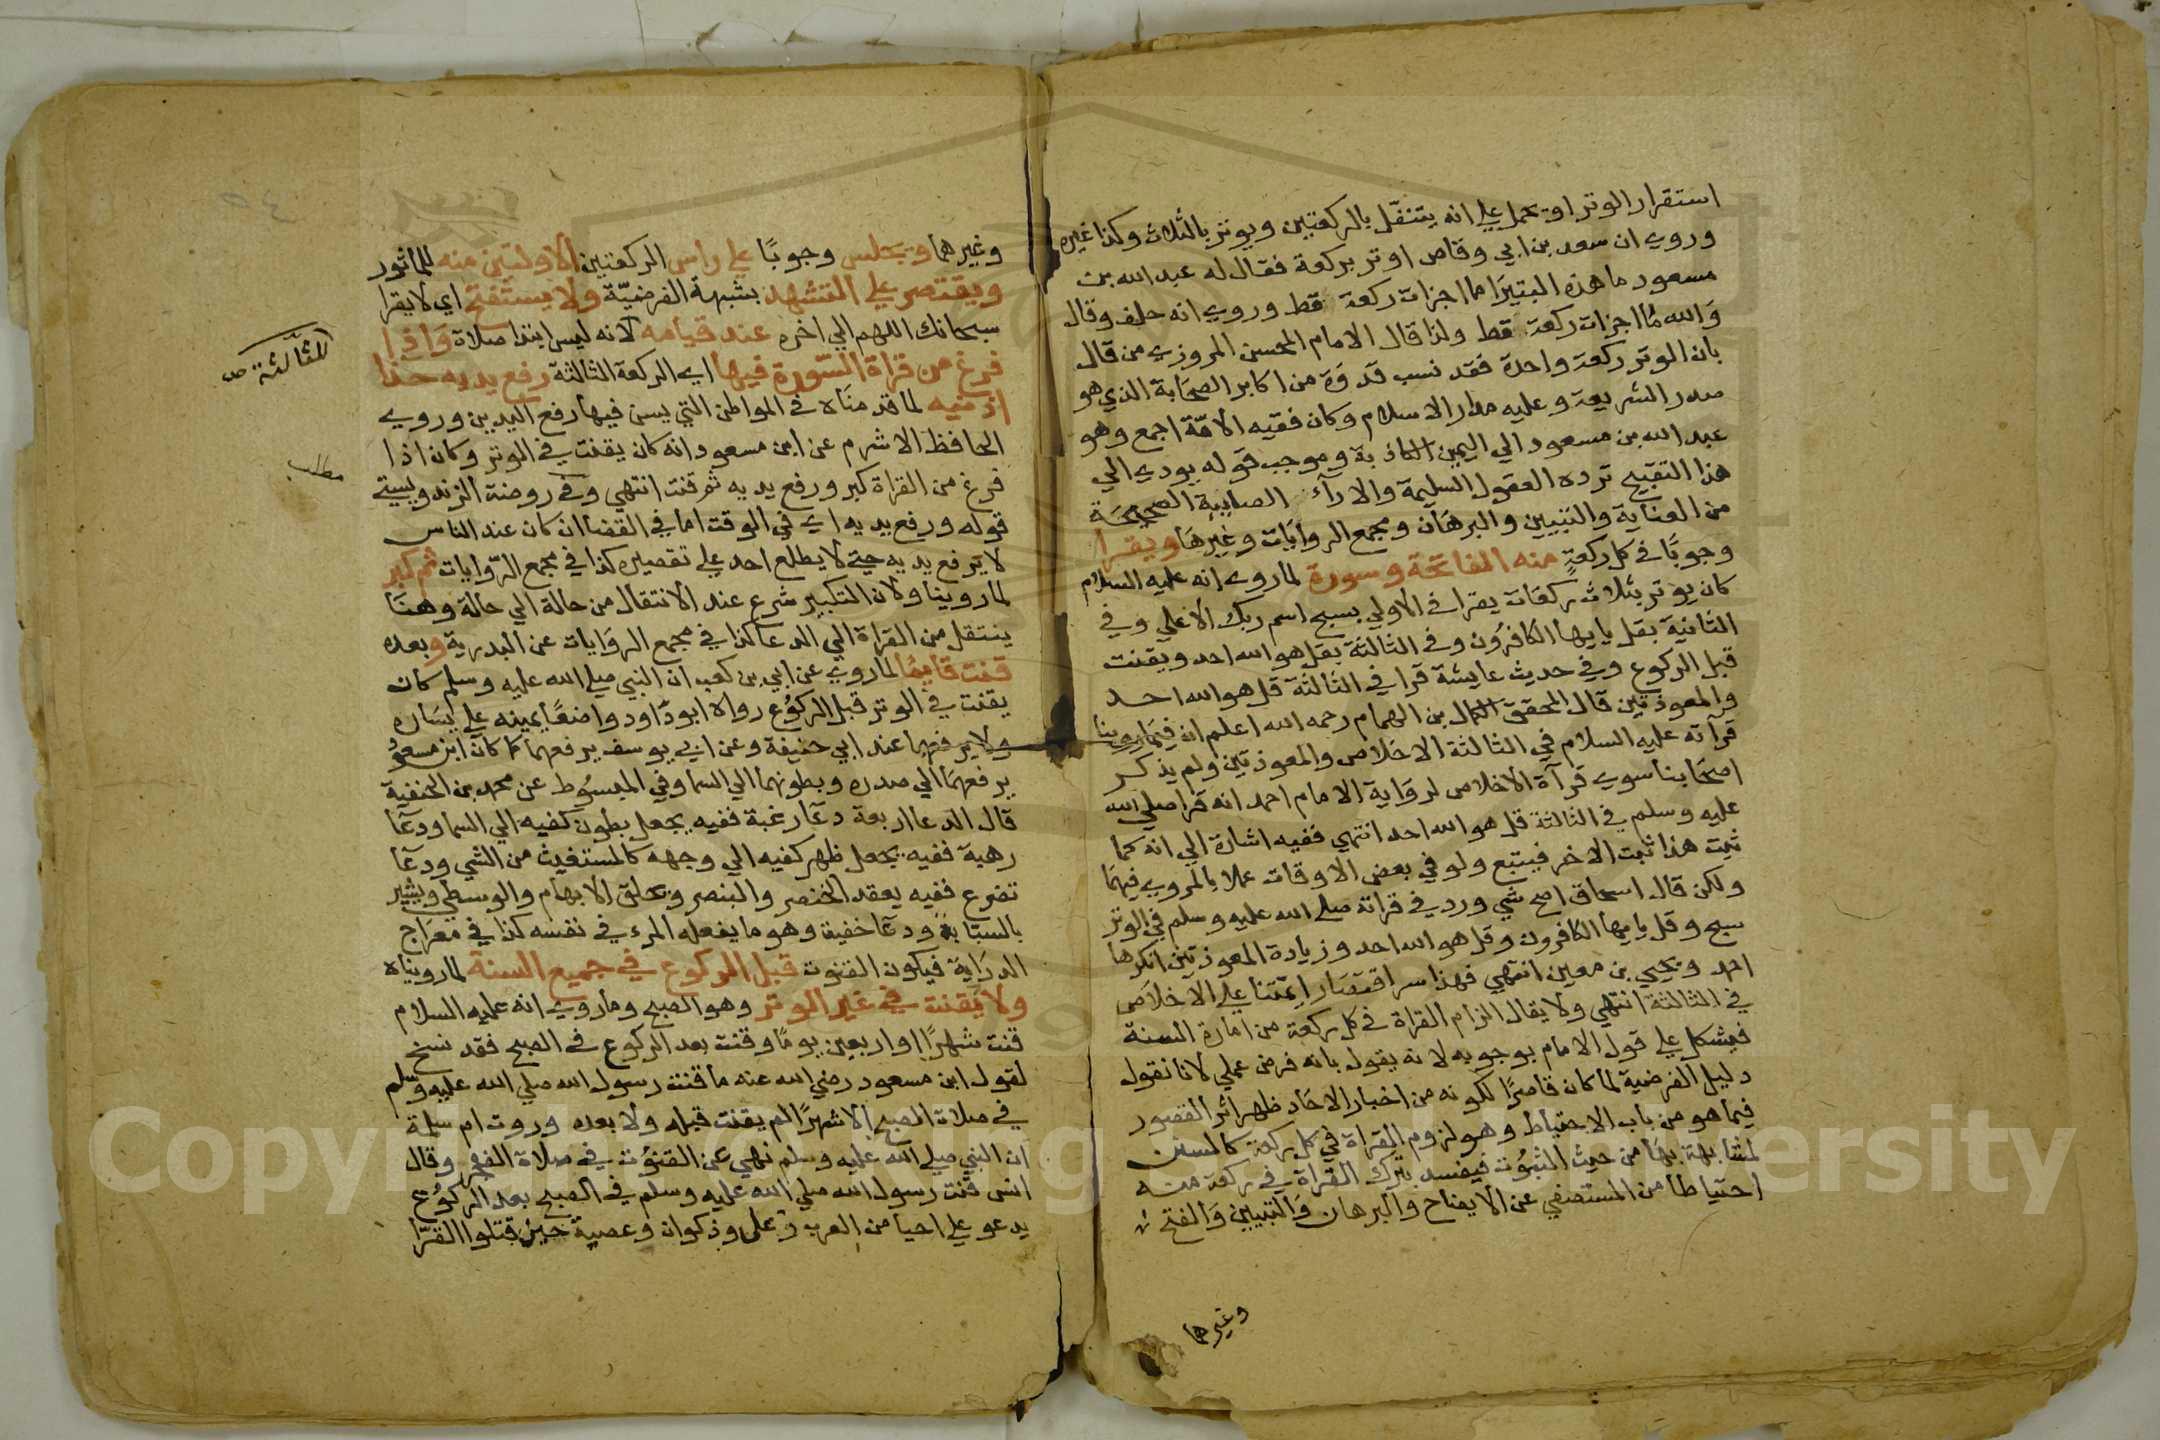 استقرار الوتر او يحمل علي انه يتنفل بالركعتين ويوتر بالثلاث وكذا غيره
وروي ان سعد بن ابي وقاص اوتر بركعة فقال له عبد الله بن
مسعود ما هذه البتيرا ما اجزات ركعة قط وروي انه حلف وقال
والله ما اجزات ركعة قط ولذا قال الامام المحسن المروزي من قال
بان الوتر ركعة واحدة فقد نسب قدوة من اكابر الصحابة الذي هو
صدر الشريعة وعليه مدار الاسلام وكان فقيه الامة اجمع وهو
عبد الله بن مسعود الي اليمين الكاذبة وموجب قوله يودي الي
هذا التقبيح ترده العقول السليمة والاراء الصايبة الصحيحة
من العناية والتبيين والبرهان ومجمع الروايات وغيرها ويقرا
وجوبا في كل ركعة منه الفاتحة وسورة لما روي انه عليه السلام
كان يوتر بثلاث ركعات يقرا في الاولي بسبح اسم ربك الاعلي وفي
الثانية بقل يايها الكافرون وفي الثالثة بقل هو الله احد ويقنت
قبل الركوع وفي حديث عايشة قرا في الثالثة قل هو الله احد
والمعوذتين قال المحقق الكمال بن الهمام رحمه الله اعلم ان فيما روينا
قرآته عليه السلام في الثالثة الاخلاص والمعوذتين ولم يذكر
اصحابنا سوي قرآة الاخلاص لرواية الامام احمد انه قرا صلي الله
عليه وسلم في الثالثة قل هو الله احد انتهي ففيه اشارة الي انه كما
ثبت هذا ثبت الاخر فيتبع ولو في بعض الاوقات عملا بالمروي فيهما
ولكن قال اسحاق اصح شي ورد في قراته صلي الله عليه وسلم في الوتر
سبح وقل يايها الكافرون وقل هو الله احد وزيادة المعوذتين انكرها
احمد ويحيي بن معين انتهي فهذا سر اقتصار ايمتنا علي الاخلاص
في الثالثة انتهي ولا يقال الزام القراة في كل ركعة من امارة السنة
فيشكل علي قول الامام بوجوبه لانه يقول بانه فرض عملي لانا نقول
دليل الفرضية لما كان قاصرا لكونه من اخبار الاحاد ظهر اثر القصور
فيما هو من باب الاحتياط وهو لزوم القراة في كل ركعة كالسنن
لمشابهة بها من حيث الثبوت فيفسد بترك القراة في ركعة منه
احتياطا من المستصفي عن الايضاح والبرهان والتبيين والفتح
وغيرها
وغيرهما ويجلس وجوبا علي راس الركعتين الاوليين منه للماثور
ويقتصر علي التشهد بشبهة الفرضية ولا يستفتح اي لا يقرا
سبحانك اللهم الي اخره عند قيامه لانه ليس ابتدا صلاة واذا
للثالثة صح
فرغ من قراة السورة فيها اي الركعة الثالثة رفع يديه حذا
اذنيه لما قدمناه في المواطن التي يسن فيها رفع اليدين وروي
الحافظ الاشرم عن ابن مسعود انه كان يقنت في الوتر وكان اذا
مطلب
فرغ من القراة كبر ورفع يديه ثم قنت انتهي وفي روضة الزندويستي
قوله ورفع يديه اي في الوقت اما في القضا ان كان عند الناس
لا يرفع يديه حتي لا يطلع احد علي تقصيره كذا في مجمع الروايات ثم كبر
لما روينا ولان التكبير شرع عند الانتقال من حالة الي حالة وهنا
ينتقل من القراة الي الدعا كذا في مجمع الروايات عن البدرية وبعده
قنت قايما لما روي عن ابي بن كعب ان النبي صلي الله عليه وسلم كان
يقنت في الوتر قبل الركوع رواه ابو داود واضعا يمينه علي يساره
ولا يرفعهما عند ابي حنيفة وعن ابي يوسف يرفعهما كما كان ابن مسعود
يرفعهما الي صدره وبطونهما الي السما وفي المبسوط عن محمد بن الحنفية
قال الدعا اربعة دعآ رغبة ففيه يجعل بطون كفيه الي السما ودعآ
رهبة ففيه يجعل ظهر كفيه الي وجهه كالمستغيث من الشي ودعآ
تضرع ففيه يعقد الخنصر والبنصر ويحلق الابهام والوسطي ويشير
بالسبابة ودعآ خفية وهو ما يفعله المرء في نفسه كذا في معراج
الدراية فيكون القنوت قبل الركوع في جميع السنة لما رويناه
ولا يقنت في غير الوتر وهو الصحيح وما روي انه عليه السلام
قنت شهرا او اربعين يوما وقنت بعد الركوع في الصبح فقد نسخ
لقول ابن مسعود رضي الله عنه ما قنت رسول الله صلي الله عليه وسلم
في صلاة الصبح الا شهرا لم يقنت قبله ولا بعده وروت ام سلمة
ان النبي صلي الله عليه وسلم نهي عن القنوت في صلاة الفجر وقال
انس قنت رسول الله صلي الله عليه وسلم في الصبح بعد الركوع
يدعو علي احيا من العرب رعل وذكوان وعصية حين قتلوا القرا
٥٤
Copyright © King Saud University